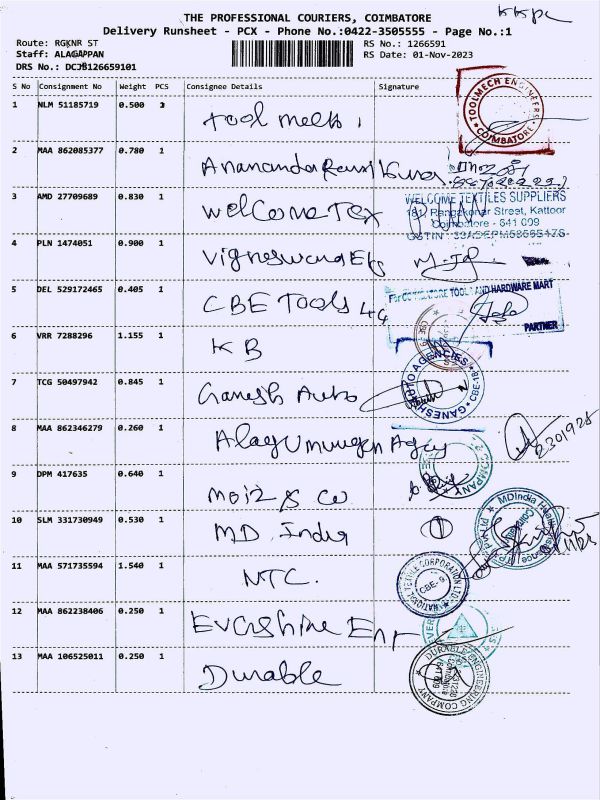 KKpc
THE PROFESSIONAL COURIERS, COIMBATORE
Delivery Runsheet - PCX - Phone No.:0422-3505555 - Page No.:1
Route: RGKNR ST
RS No.: 1266591
Staff: ALAGAPPAN
RS Date: 01-Nov-2023
DRS No.: DCJB126659101
S No Consignment No Weight PCS Consignee Details Signature
1 NLM 51185719 0.500 Tool mech
TOOLMECH ENGINEERS COIMBATORE
2 MAA 862085377 0.780 1
3 AMD 27709689 0.830 1 Welcome Tex
WELCOME TEXTILES SUPPLIERS
181 Rangakonar Street, Kattoor
Coimbatore - 641 009
4 PLN 1474051 0.900 1
5 DEL 529172465 0.405 1 CBE Tools
For COIMBATORE TOOL AND HARDWARE MART
PARTNER
6 VRR 7288296 1.155 1 KB
7 TCG 50497942 0.845 1 Ganesh Auto
GANESH AUTO AGENCIES CBE-18
8 MAA 862346279 0.260 1
9 DPM 417635 0.640 1 Moiz & co
COMPANY
10 SLM 331730949 0.530 1 MD India
11 MAA 571735594 1.540 1 NTC.
NATIONAL TEXTILE CORPORATION LTD
CBE-9
12 MAA 862238406 0.250 1 Evershine Ent
13 MAA 106525011 0.250 1 Durable
DURABLE ENGINEERING COMPANY